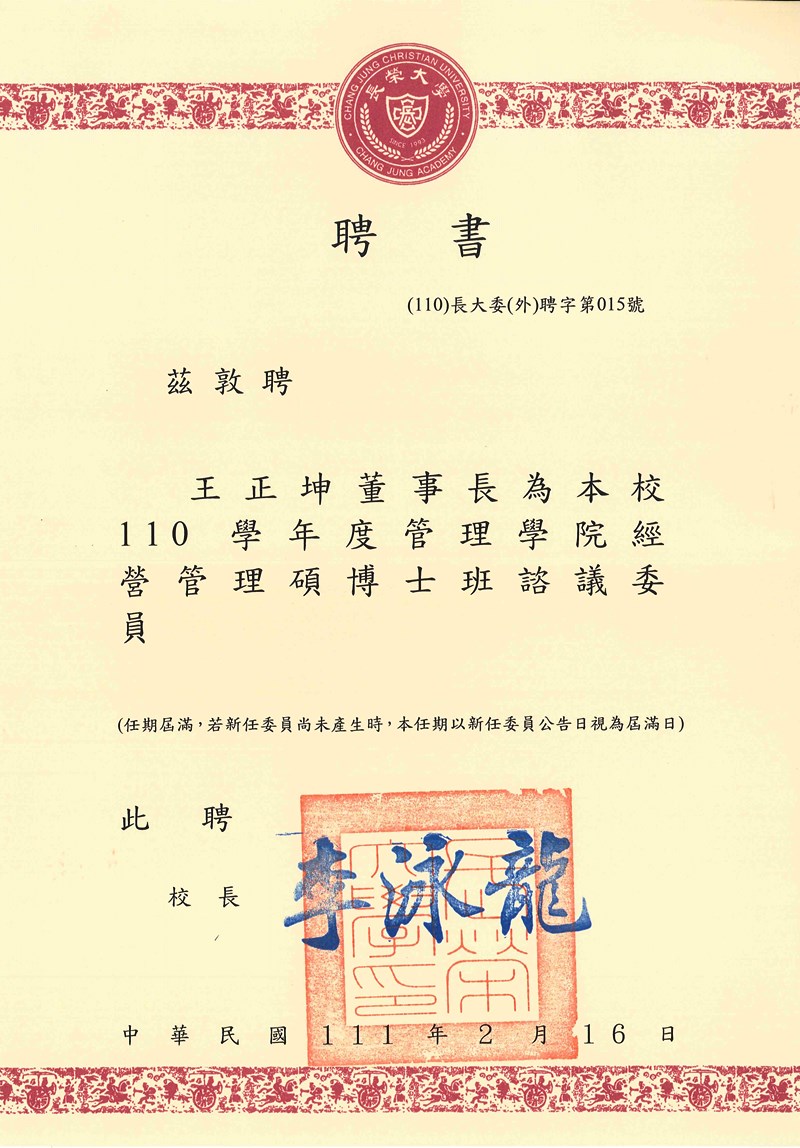 CHANG JUNG CHRISTIAN UNIVERSITY
長榮大學
SINCE 1993
CHANG JUNG ACADEMY
聘書
(110)長大委(外)聘字第015號
茲敦聘
王正坤董事長為本校
110學年度管理學院經
營管理碩博士班諮議委
員
(任期屆滿，若新任委員尚未產生時，本任期以新任委員公告日視為屆滿日)
此聘
校長 李泳龍
長榮大學印
中華民國111年2月16日